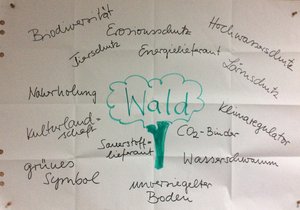 Biodiversität
Erosionsschutz
Hochwasserschutz
Tierschutz
Energielieferant
Lärmschutz
Naherholung
Wald
Klimaregulator
Kulturland-
schaft
Sauerstoff-
lieferant
CO2-Binder
grünes
Symbol
Wasserschwamm
unversiegelter
Boden